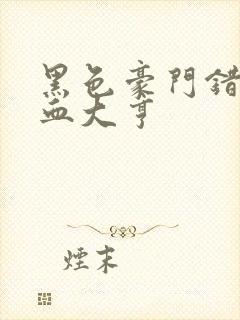 黑色豪門錯
血大亨
煙末